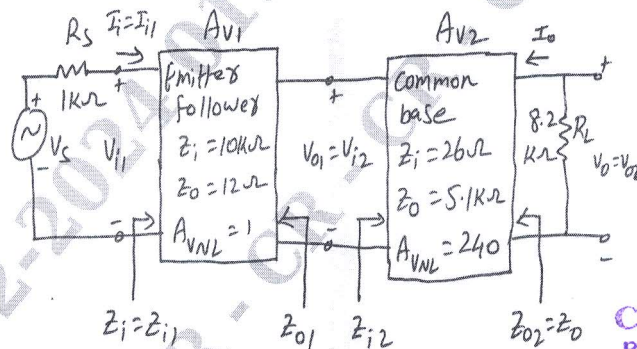 Ii=Ii1
Rs
1KΩ
+
-
Vs
Vi1
+
-
AV1
Emitter
follower
Zi=10KΩ
Zo=12Ω
AVNL=1
+
Vo1=Vi2
-
AV2
common
base
Zi=26Ω
Zo=5.1KΩ
AVNL=240
Io
8.2
KΩ
RL
+
-
Zi=Zi1
Zo1
Zi2
Zo2=Zo